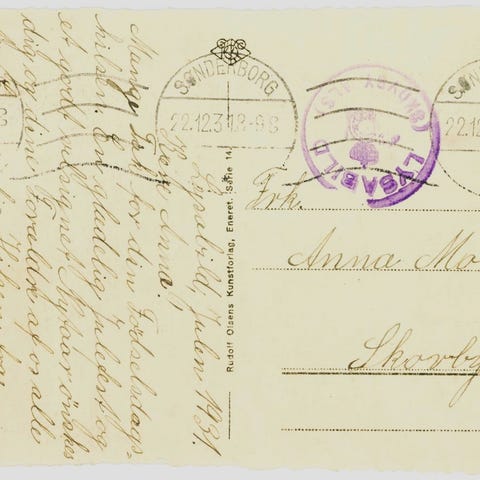 Lysabild, Julen 1931.
Kære Anna!
Mange Tak for den Fødselsdags-
hilsen. En Glædelig Julefest og
et godt velsignet Nytaar ønskes
dig og dine Forældre af os alle
SØNDERBORG
22.12.31.8-9 S
SØNDERB
22.12
LYSABILD
(SKOVBY ALS)
Rudolf Olsens Kunstforlag, Eneret. Serie 14
Frk.
Anna Mo
Skovby